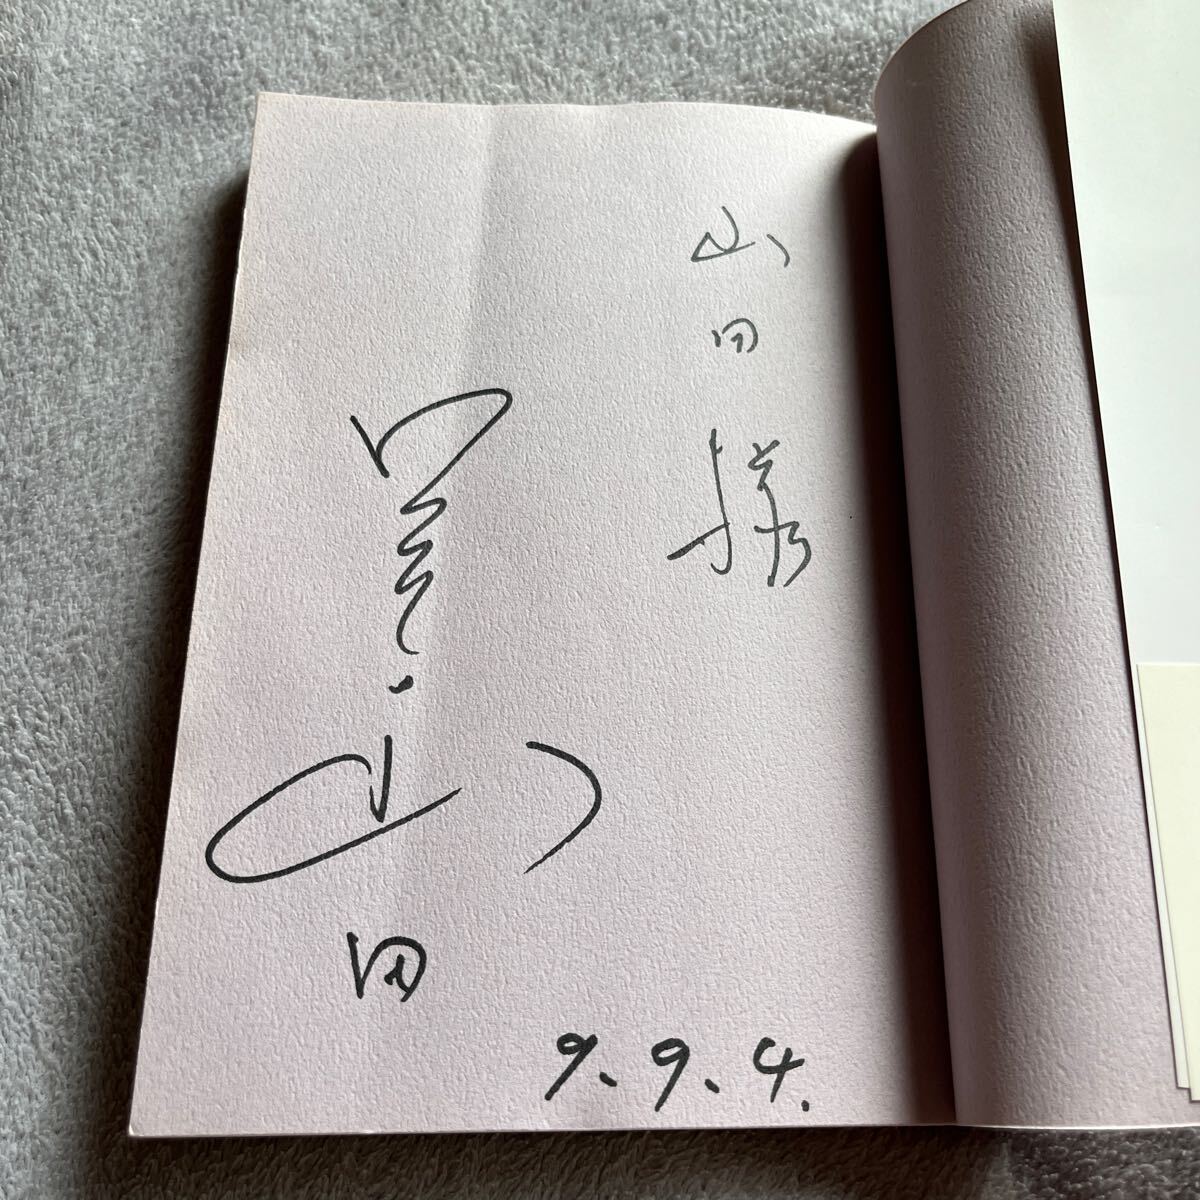 山田様
山田
9.9.4.